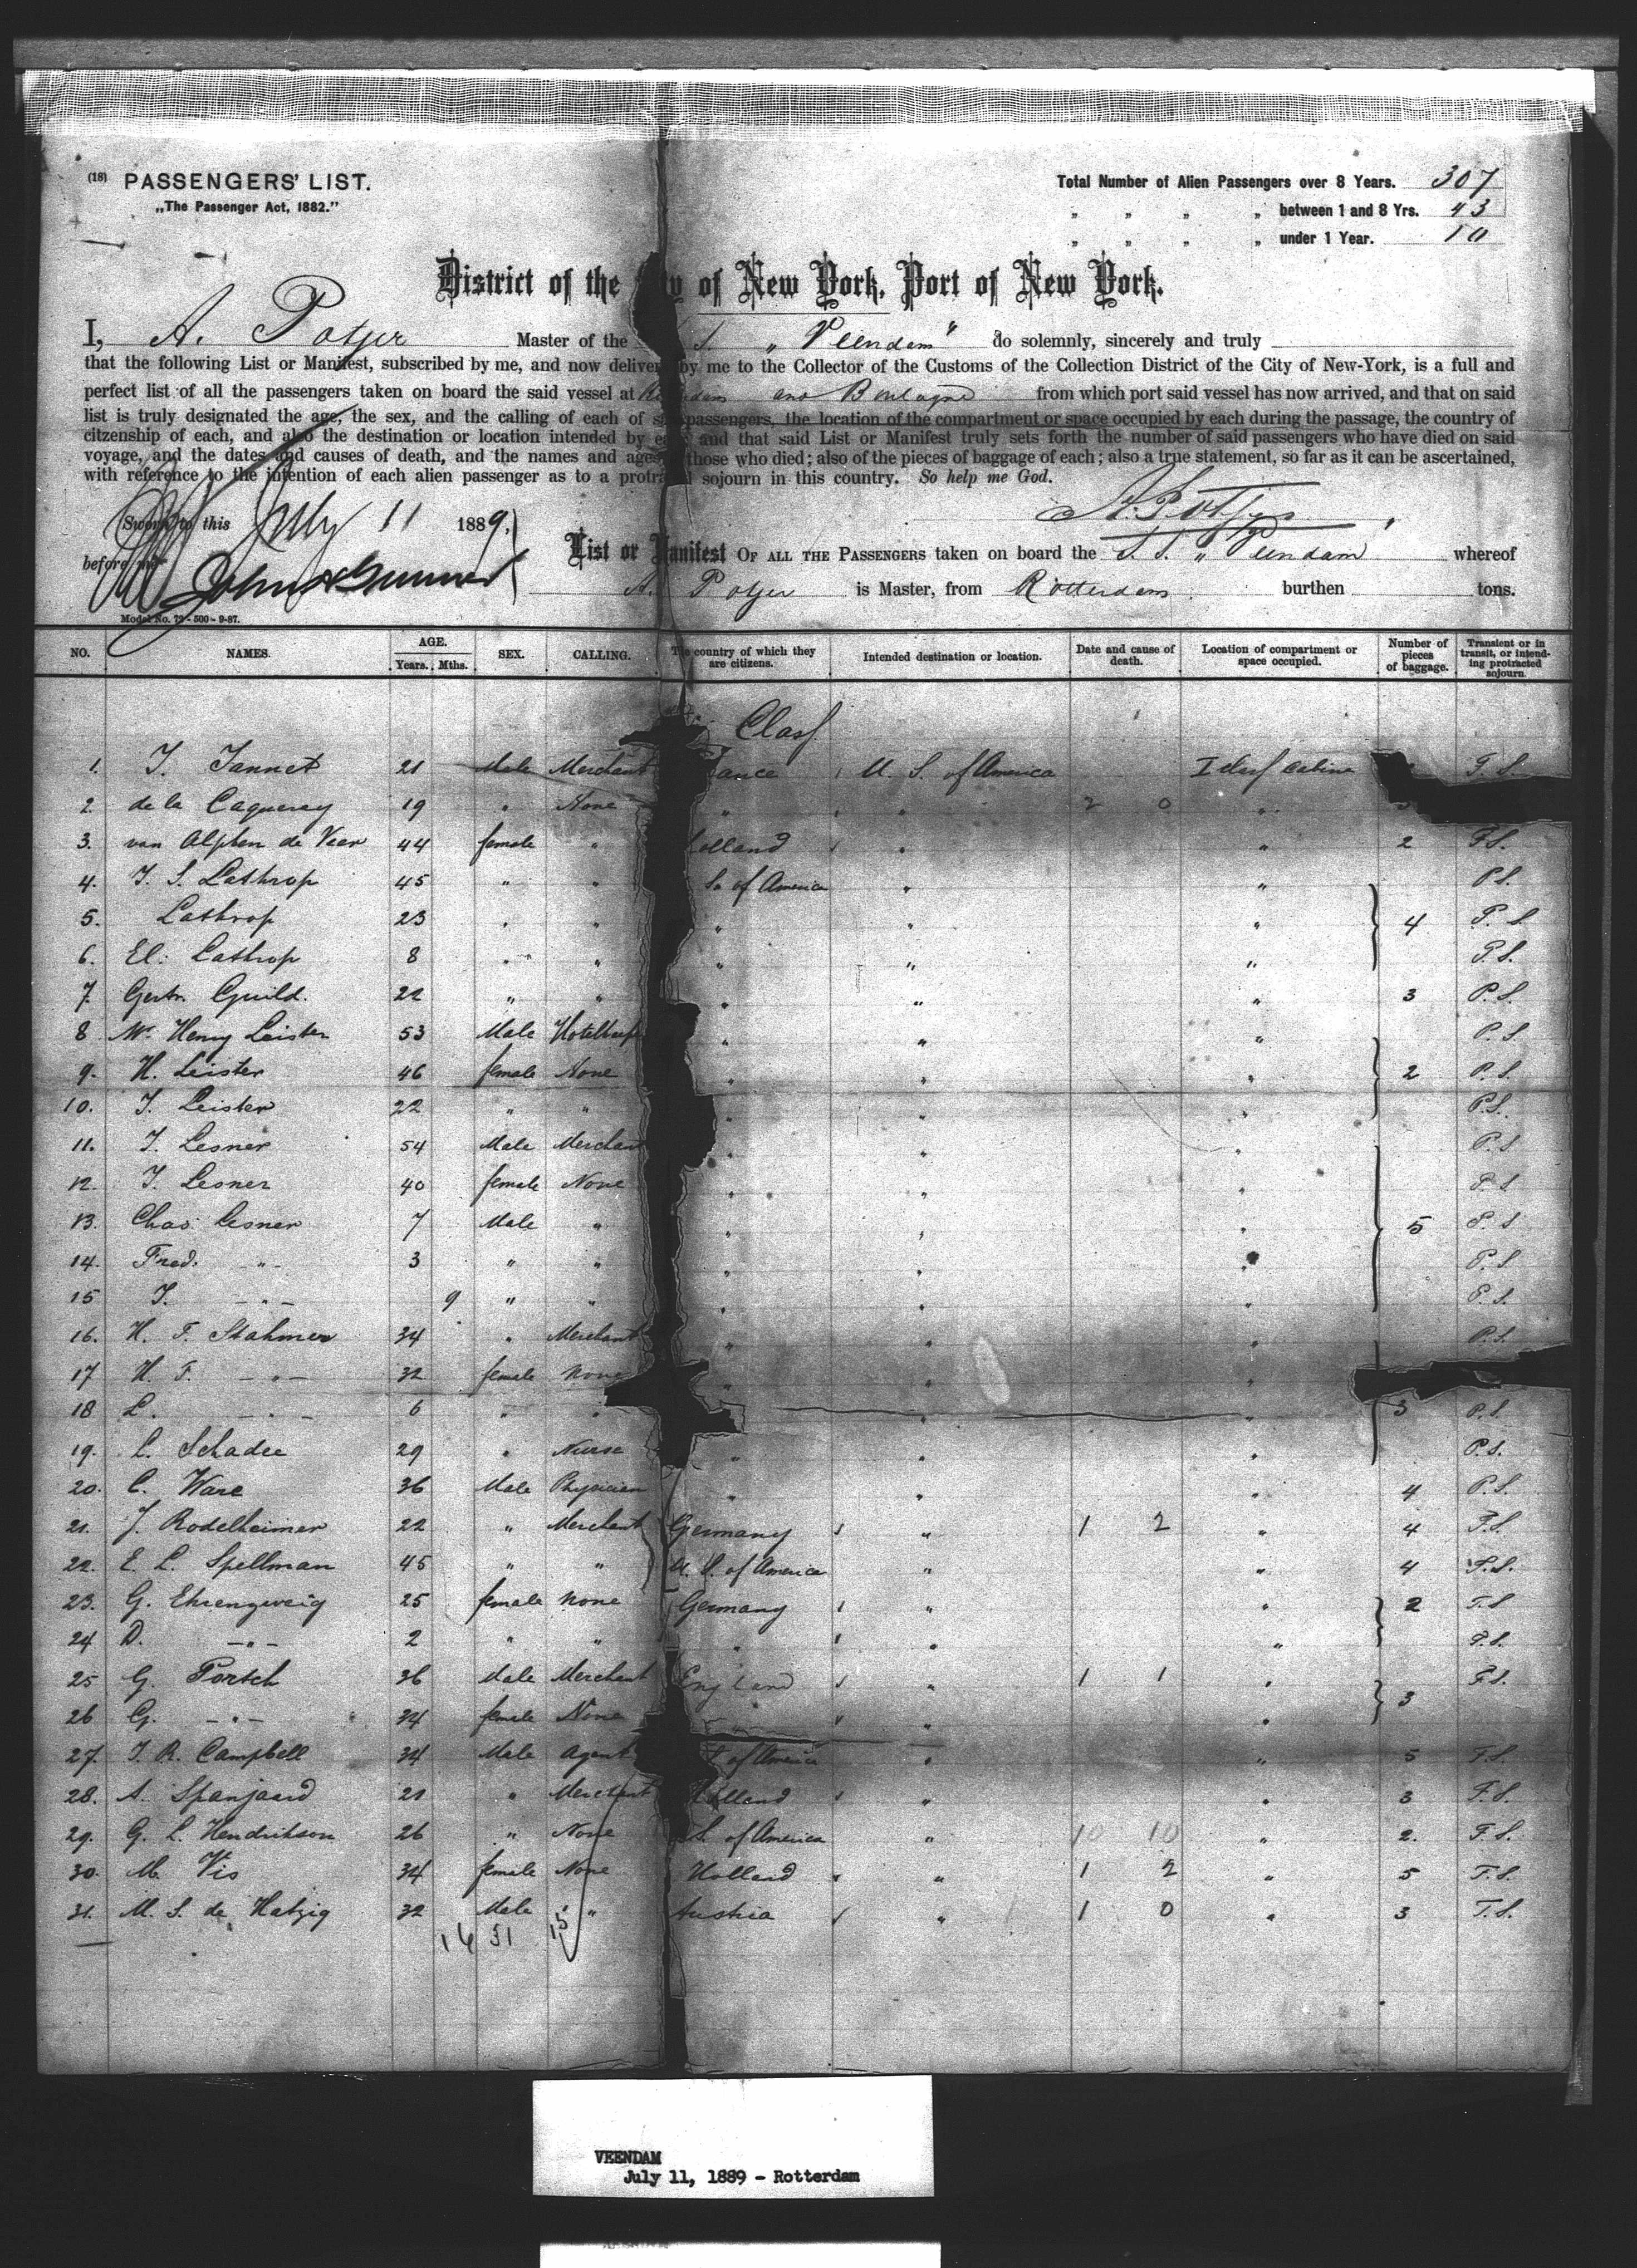 (18) PASSENGERS' LIST.
„The Passenger Act, 1882."
Total Number of Alien Passengers over 8 Years. 307
„ „ „ „ between 1 and 8 Yrs. 43
„ „ „ „ under 1 Year. 10
District of the City of New York, Port of New York.
I, A. Potjer Master of the S. „Veendam" do solemnly, sincerely and truly
that the following List or Manifest, subscribed by me, and now deliver by me to the Collector of the Customs of the Collection District of the City of New-York, is a full and
perfect list of all the passengers taken on board the said vessel at Rotterdam and Boulogne from which port said vessel has now arrived, and that on said
list is truly designated the age, the sex, and the calling of each of said passengers, the location of the compartment or space occupied by each during the passage, the country of
citzenship of each, and also the destination or location intended by each and that said List or Manifest truly sets forth the number of said passengers who have died on said
voyage, and the dates and causes of death, and the names and ages those who died; also of the pieces of baggage of each; also a true statement, so far as it can be ascertained,
with reference to the intention of each alien passenger as to a protracted sojourn in this country. So help me God.
A. Potjer
Sworn to this July 11 1889,
before me
List or Manifest OF ALL THE PASSENGERS taken on board the S. S. „Veendam whereof
A. Potjer is Master, from Rotterdam burthen tons.
Model No. 72 - 500 - 9-87.
NO. NAMES. AGE. Years. Mths. SEX. CALLING. The country of which they are citizens. Intended destination or location. Date and cause of death. Location of compartment or space occupied. Number of pieces of baggage. Transient or in transit, or intending protracted sojourn.
Class
1. J. Jannet 21 Male Merchant France U. S. of America I Class Cabine T. S.
2 de la Caqueray 19 " None " " 2 0 "
3. van Alphen de Veer 44 female " Holland " " 2 T.S.
4. J. S. Lathrop 45 " " S. of America " " P.S.
5. Lathrop 23 " " " " " 4 P. S.
6. El: Lathrop 8 " " " " " P.S.
7. Gertr. Guild. 22 " " " " " 3 P.S.
8. Mr. Henry Leister 53 Male Hotelkeep " " " P.S.
9. H. Leister 46 female None " " " 2 P.S.
10. J. Leister 22 " " " " " P.S.
11. J. Lesner 54 Male Merchant " " " P.S
12. J. Lesner 40 female None " " " P.S
13. Chas: Lesner 7 Male " " " " 5 P.S
14. Fred. -"- 3 " " " " " P.S
15 J. -"- 9 " " " " " P.S.
16. H. F. Stahmer 34 " Merchant " " " P.S.
17 H. F. -"- 32 female None " " "
18 L. -"- 6 " " " " 3 P.S.
19. L. Schadee 29 " Nurse " " " P.S.
20. C. Ware 36 Male Physician " " " 4 P.S.
21. J. Rodelheimer 22 " Merchant Germany " 1 2 " 4 T.S.
22. E. L. Spellman 45 " " U. S. of America " " 4 T.S.
23. G. Ehrenzweig 25 female None Germany " " 2 T.S
24 D. -"- 2 " " " " " T.S.
25 G. Portsch 36 Male Merchant England " 1 1 " T.S.
26 G. -"- 34 female None " " " 3
27. J. R. Campbell 34 Male Agent S. of America " " 5 T.S.
28. A. Spanjaard 21 " Merchant Holland " " 3 T.S.
29. G. L. Hendrikson 26 " None S. of America " 10 10 " 2. T.S.
30. M. Vis 34 female None Holland " 1 2 " 5 T.S.
31. M. S. de Hatzig 32 Male " Austria " 1 0 " 3 T.S.
16 31 15
VEENDAM
July 11, 1889 - Rotterdam